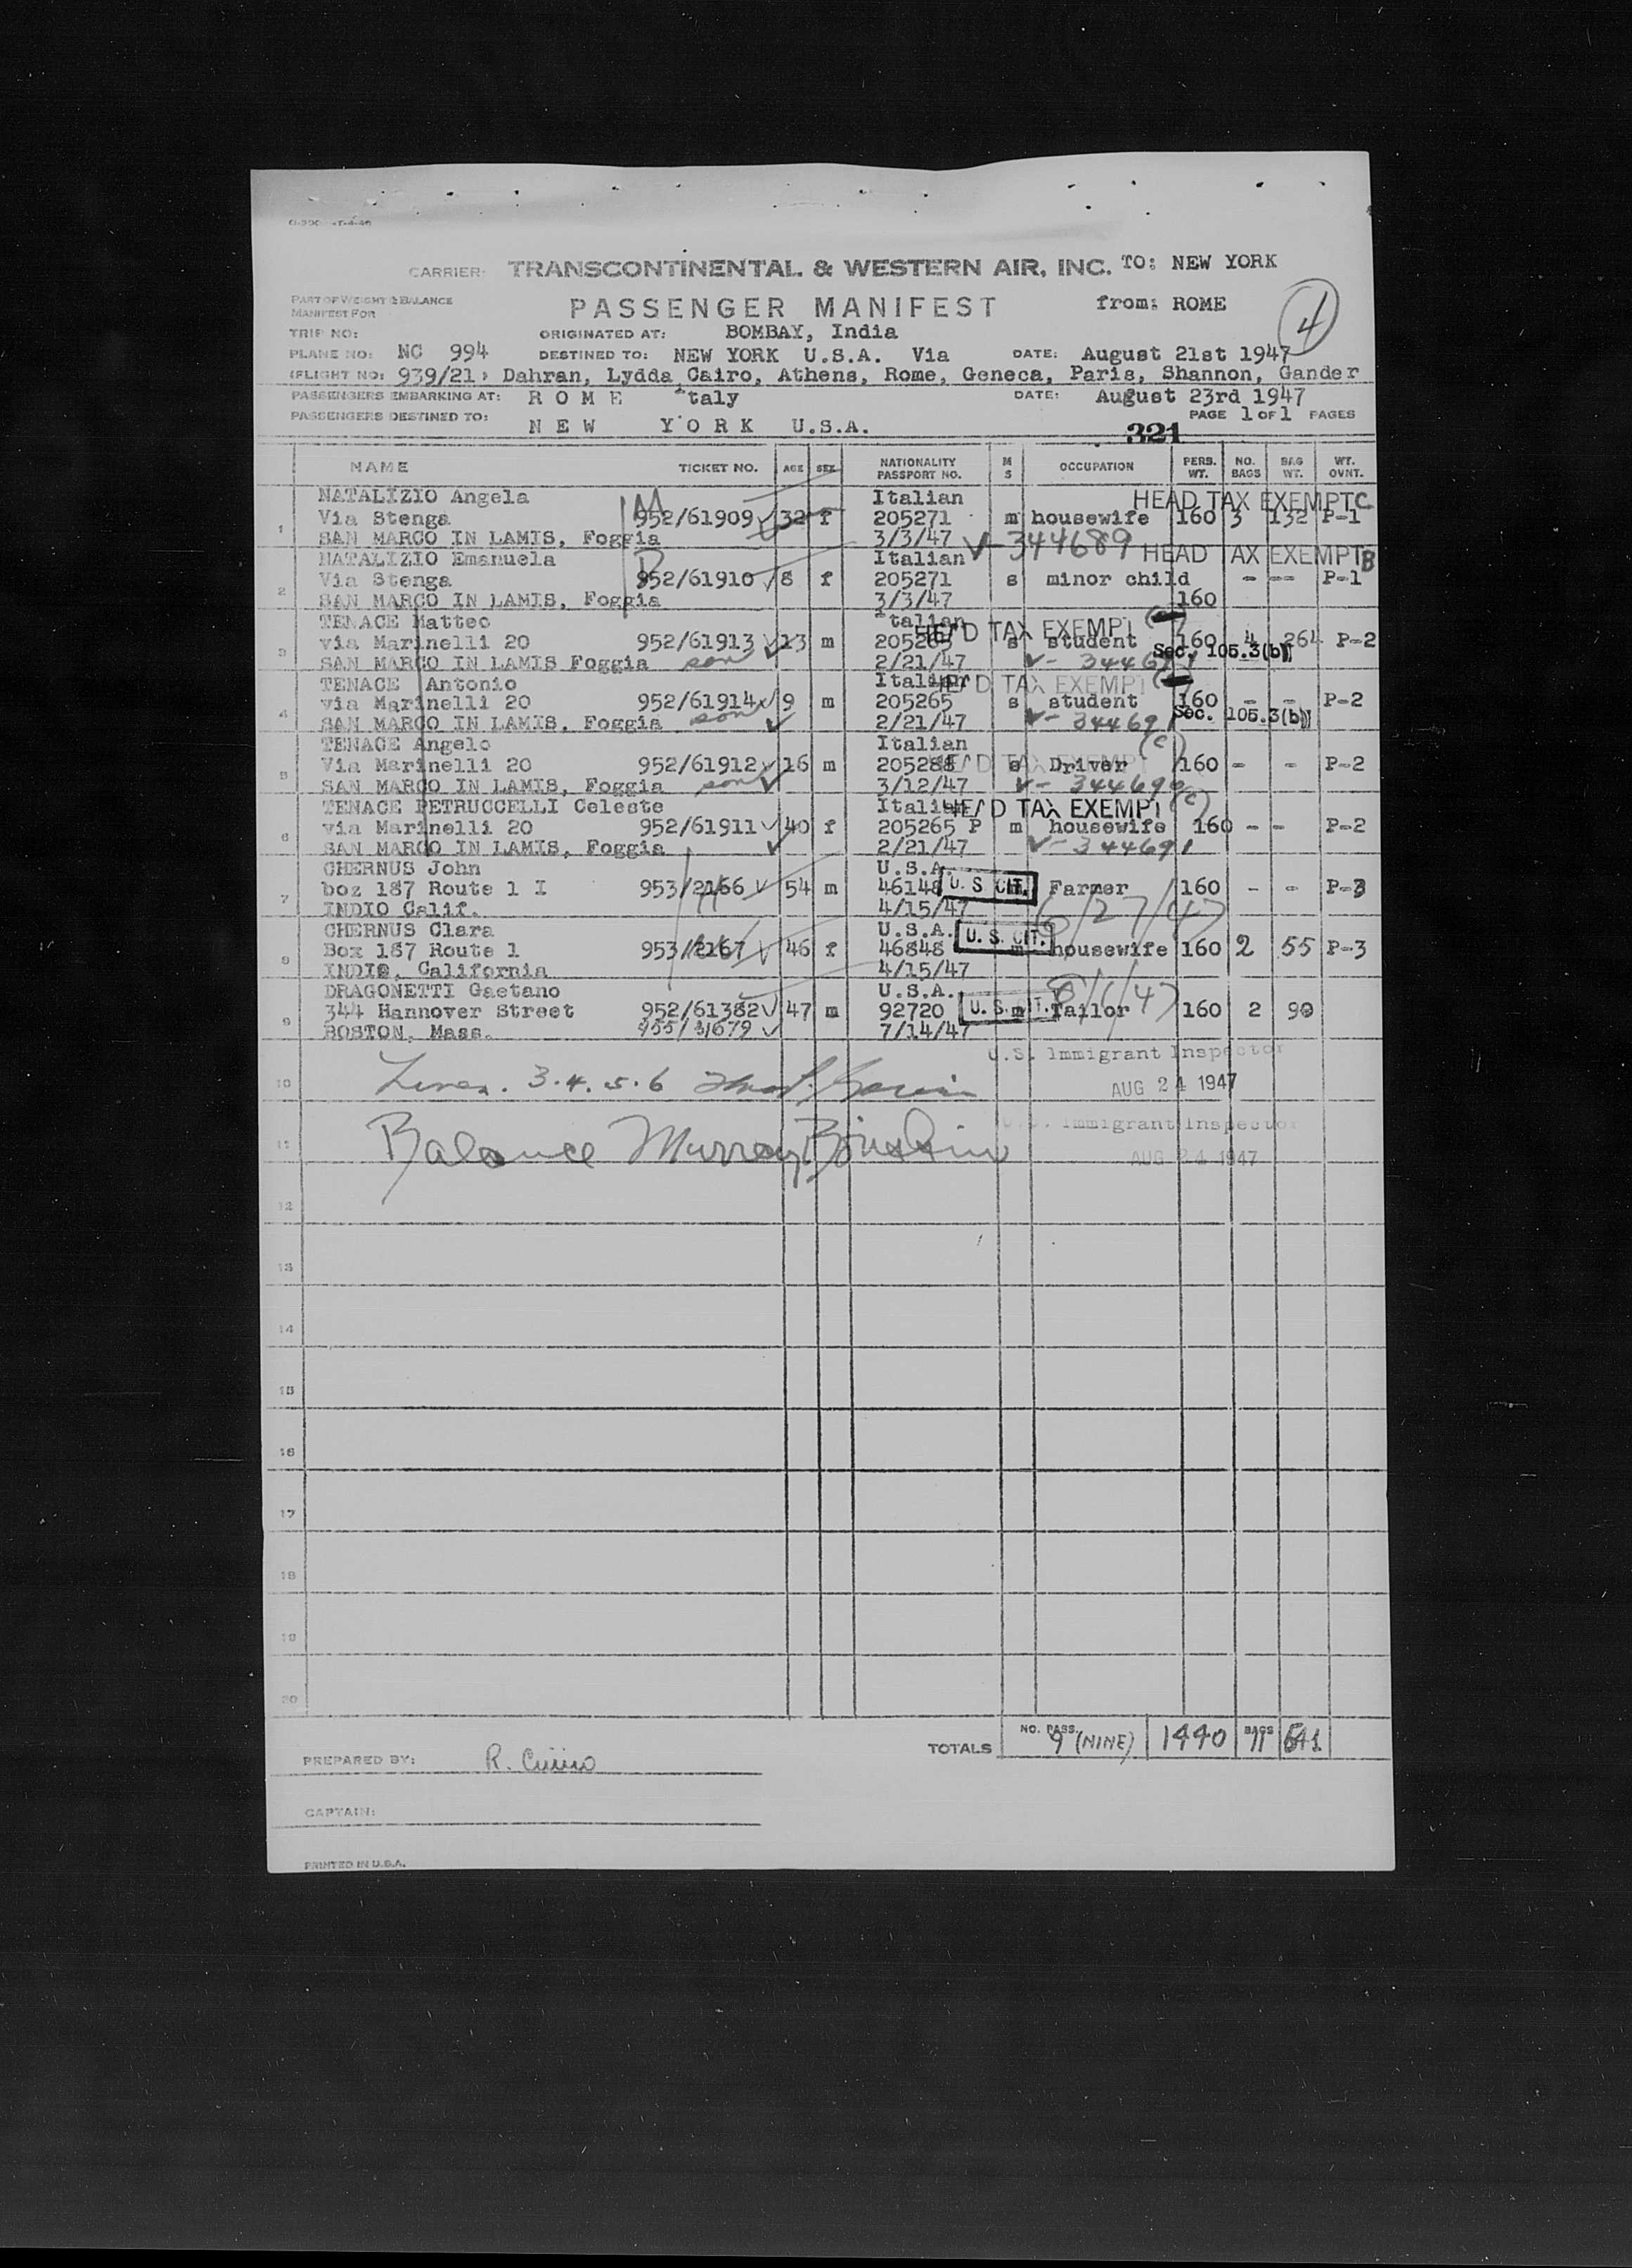 CARRIER: TRANSCONTINENTAL & WESTERN AIR, INC. TO: NEW YORK
PART OF WEIGHT & BALANCE
MANIFEST FOR
PASSENGER MANIFEST from: ROME
4
TRIP NO: ORIGINATED AT: BOMBAY, India
PLANE NO: NC 994 DESTINED TO: NEW YORK U.S.A. Via DATE: August 21st 1947
(FLIGHT NO: 939/21) Dahran, Lydda Cairo, Athens, Rome, Geneca, Paris, Shannon, Gander
PASSENGERS EMBARKING AT: R O M E Italy DATE: August 23rd 1947
PASSENGERS DESTINED TO: N E W Y O R K U.S.A. PAGE 1 OF 1 PAGES
321
NAME TICKET NO. AGE SEX NATIONALITY PASSPORT NO. M S OCCUPATION PERS. WT. NO. BAGS BAG WT. WT. OVNT.
NATALIZIO Angela Italian HEAD TAX EXEMPT C
1 Via Stenga 952/61909 32 f 205271 m housewife 160 3 132 P-1
SAN MARCO IN LAMIS, Foggia 3/3/47 V-344689
NATALIZIO Emanuela Italian HEAD TAX EXEMPT B
2 Via Stenga 952/61910 8 f 205271 s minor child - -- P-1
SAN MARCO IN LAMIS, Foggia 3/3/47 160
TENACE Matteo Italian HEAD TAX EXEMPT
3 via Marinelli 20 952/61913 13 m 205265 s student 160 4 264 P-2
SAN MARCO IN LAMIS Foggia son 2/21/47 V-344691 Sec. 105.3(b)
TENACE Antonio Italian HEAD TAX EXEMPT
4 via Marinelli 20 952/61914 9 m 205265 s student 160 - - P-2
SAN MARCO IN LAMIS, Foggia son 2/21/47 V-344691 Sec. 105.3(b)
TENACE Angelo Italian (c)
5 Via Marinelli 20 952/61912 16 m 205288 HEAD TAX EXEMPT s Driver 160 - - P-2
SAN MARCO IN LAMIS, Foggia son 3/12/47 V-344690
TENACE PETRUCCELLI Celeste Italian HEAD TAX EXEMPT (c)
6 via Marinelli 20 952/61911 40 f 205265 P m housewife 160 - - P-2
SAN MARCO IN LAMIS, Foggia 2/21/47 V-344691
CHERNUS John U.S.A.
7 boz 187 Route 1 I 953/2166 54 m 46148 U. S. CIT. Farmer 160 - - P-3
INDIO Calif. 4/15/47 6/27/47
CHERNUS Clara U.S.A. U. S. CIT.
8 Box 187 Route 1 953/2167 46 f 46848 m housewife 160 2 55 P-3
INDIO, California 4/15/47
DRAGONETTI Gaetano U.S.A. 8/1/47
9 344 Hannover Street 952/61382 47 m 92720 U. S. CIT. m Tailor 160 2 90
BOSTON, Mass. 7/14/47
U.S. Immigrant Inspector
10 Lines. 3.4.5.6 AUG 24 1947
U.S. Immigrant Inspector
11 Balance Murray
AUG 24 1947
12
13
14
15
16
17
18
19
20
TOTALS NO. PASS. 9 (NINE) 1440 BAGS 11 541
PREPARED BY:
CAPTAIN:
PRINTED IN U.S.A.